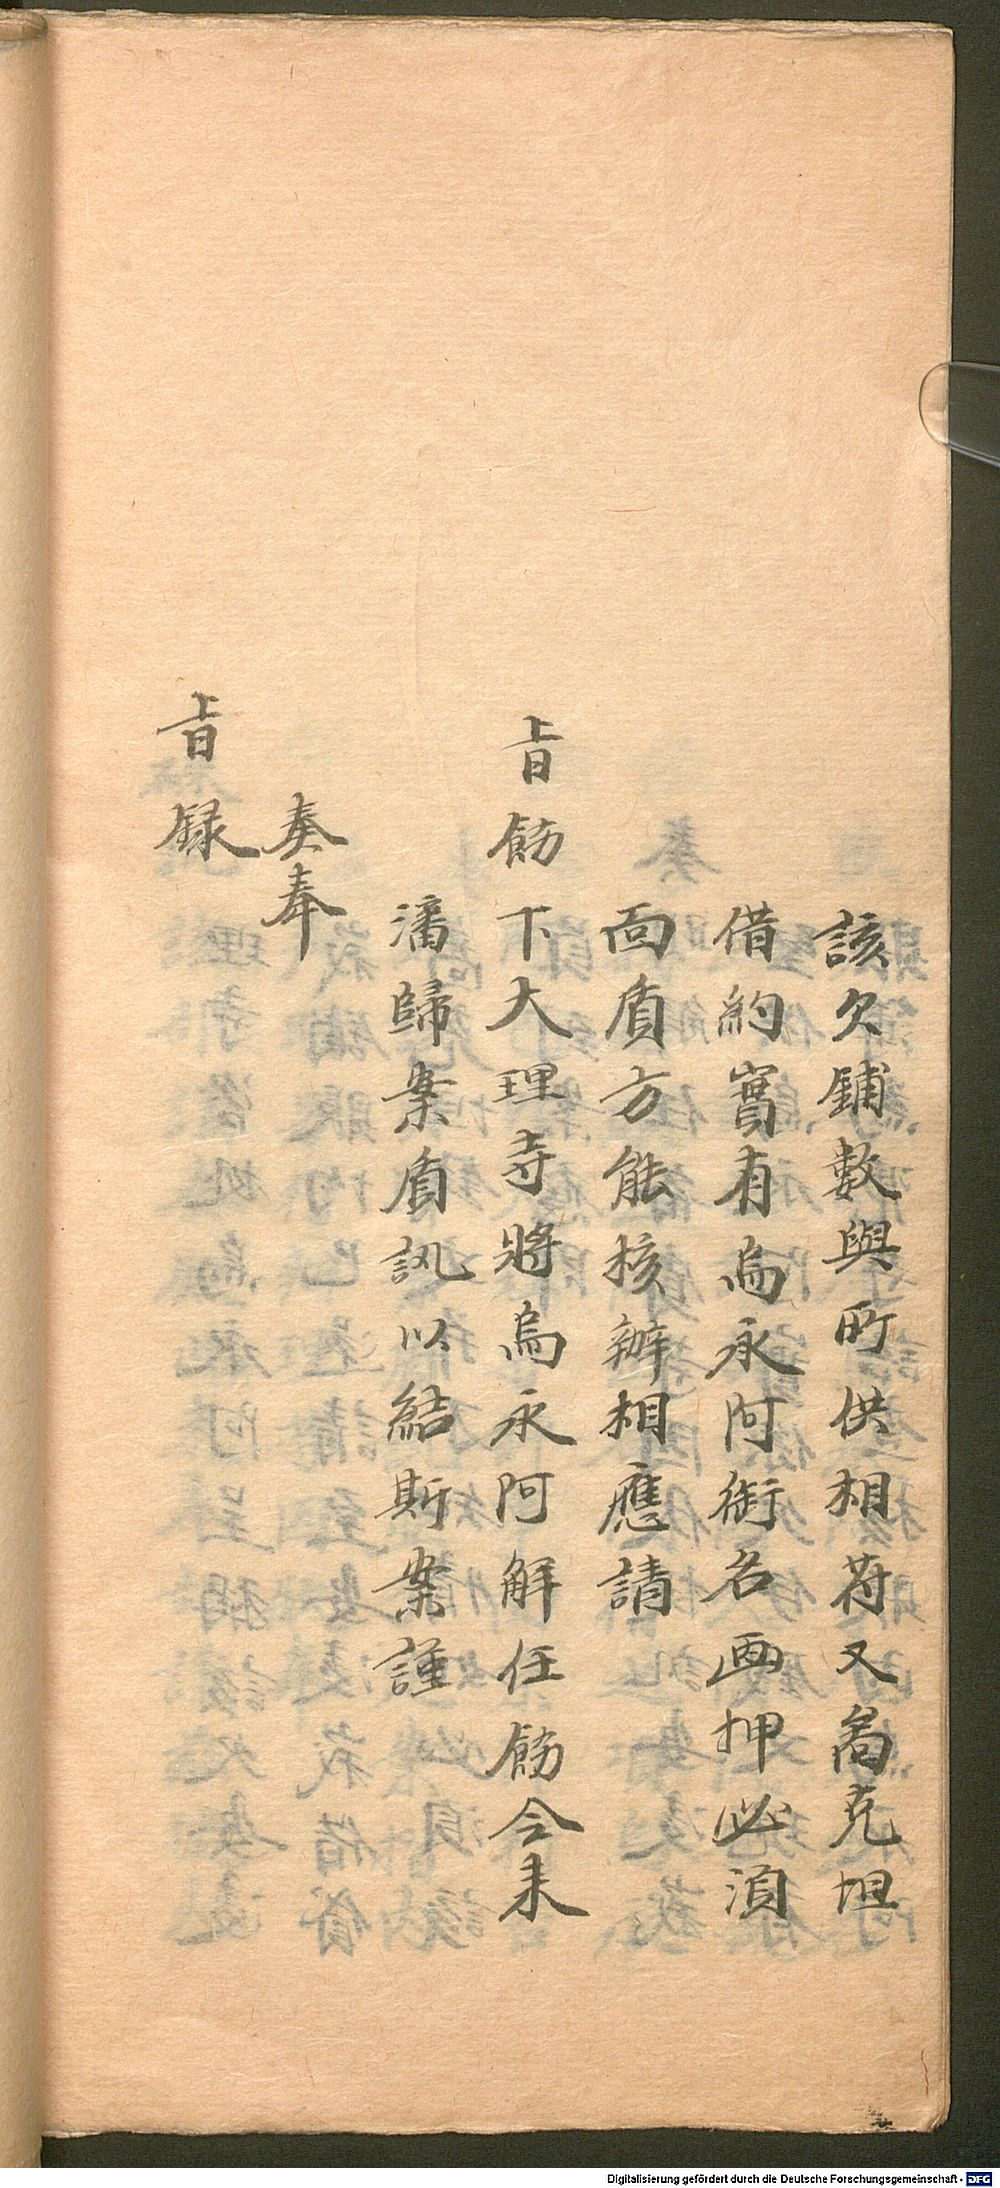 該欠鋪數與所供相符又喬克坦
借約實有烏永阿銜名画押必須
面質方能核辦相應請
旨飭下大理寺將烏永阿解任飭令来
潘歸案質訊以結斯案謹
奏奉
旨録
Digitalisierung gefördert durch die Deutsche Forschungsgemeinschaft - DFG